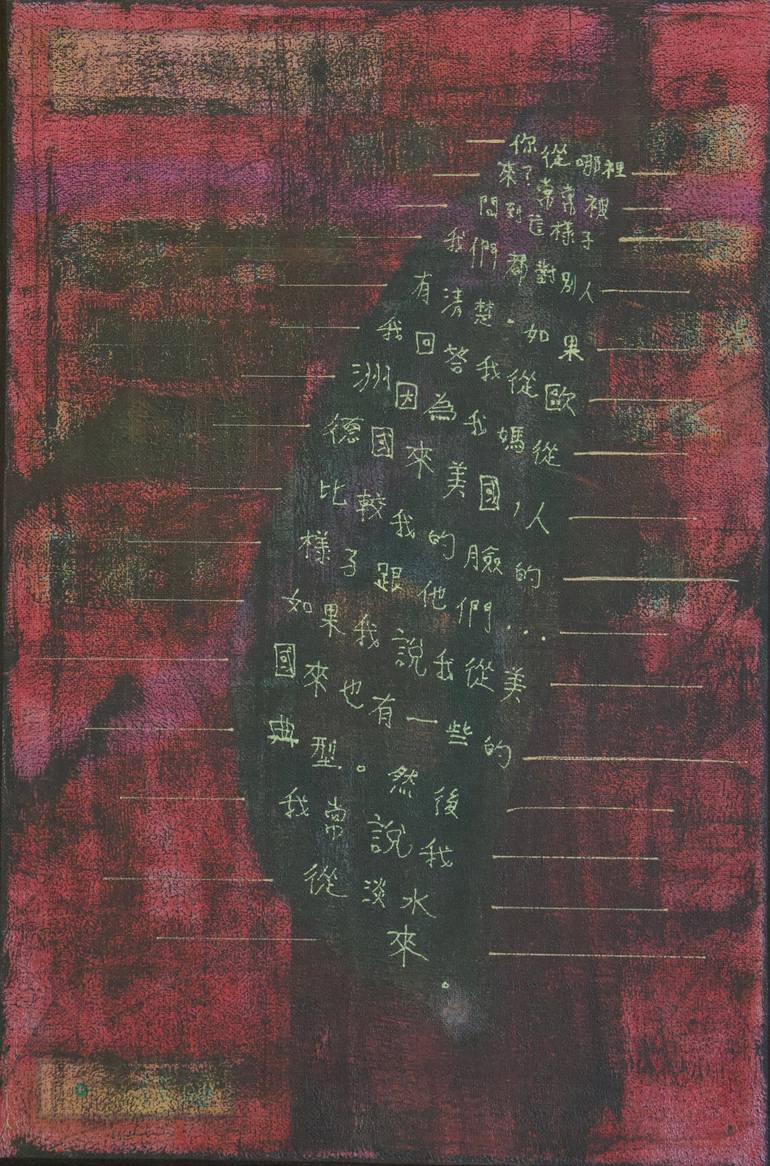 你從哪裡
來?常常被
問到這樣子
我們都對別人
有清楚。如果
我回答我從歐
洲因為我媽從
德國來美國,人
比較我的臉的
樣子跟他們...
如果我說我從美
國來也有一些的
典型。然後
我常說我
從淡水
來.